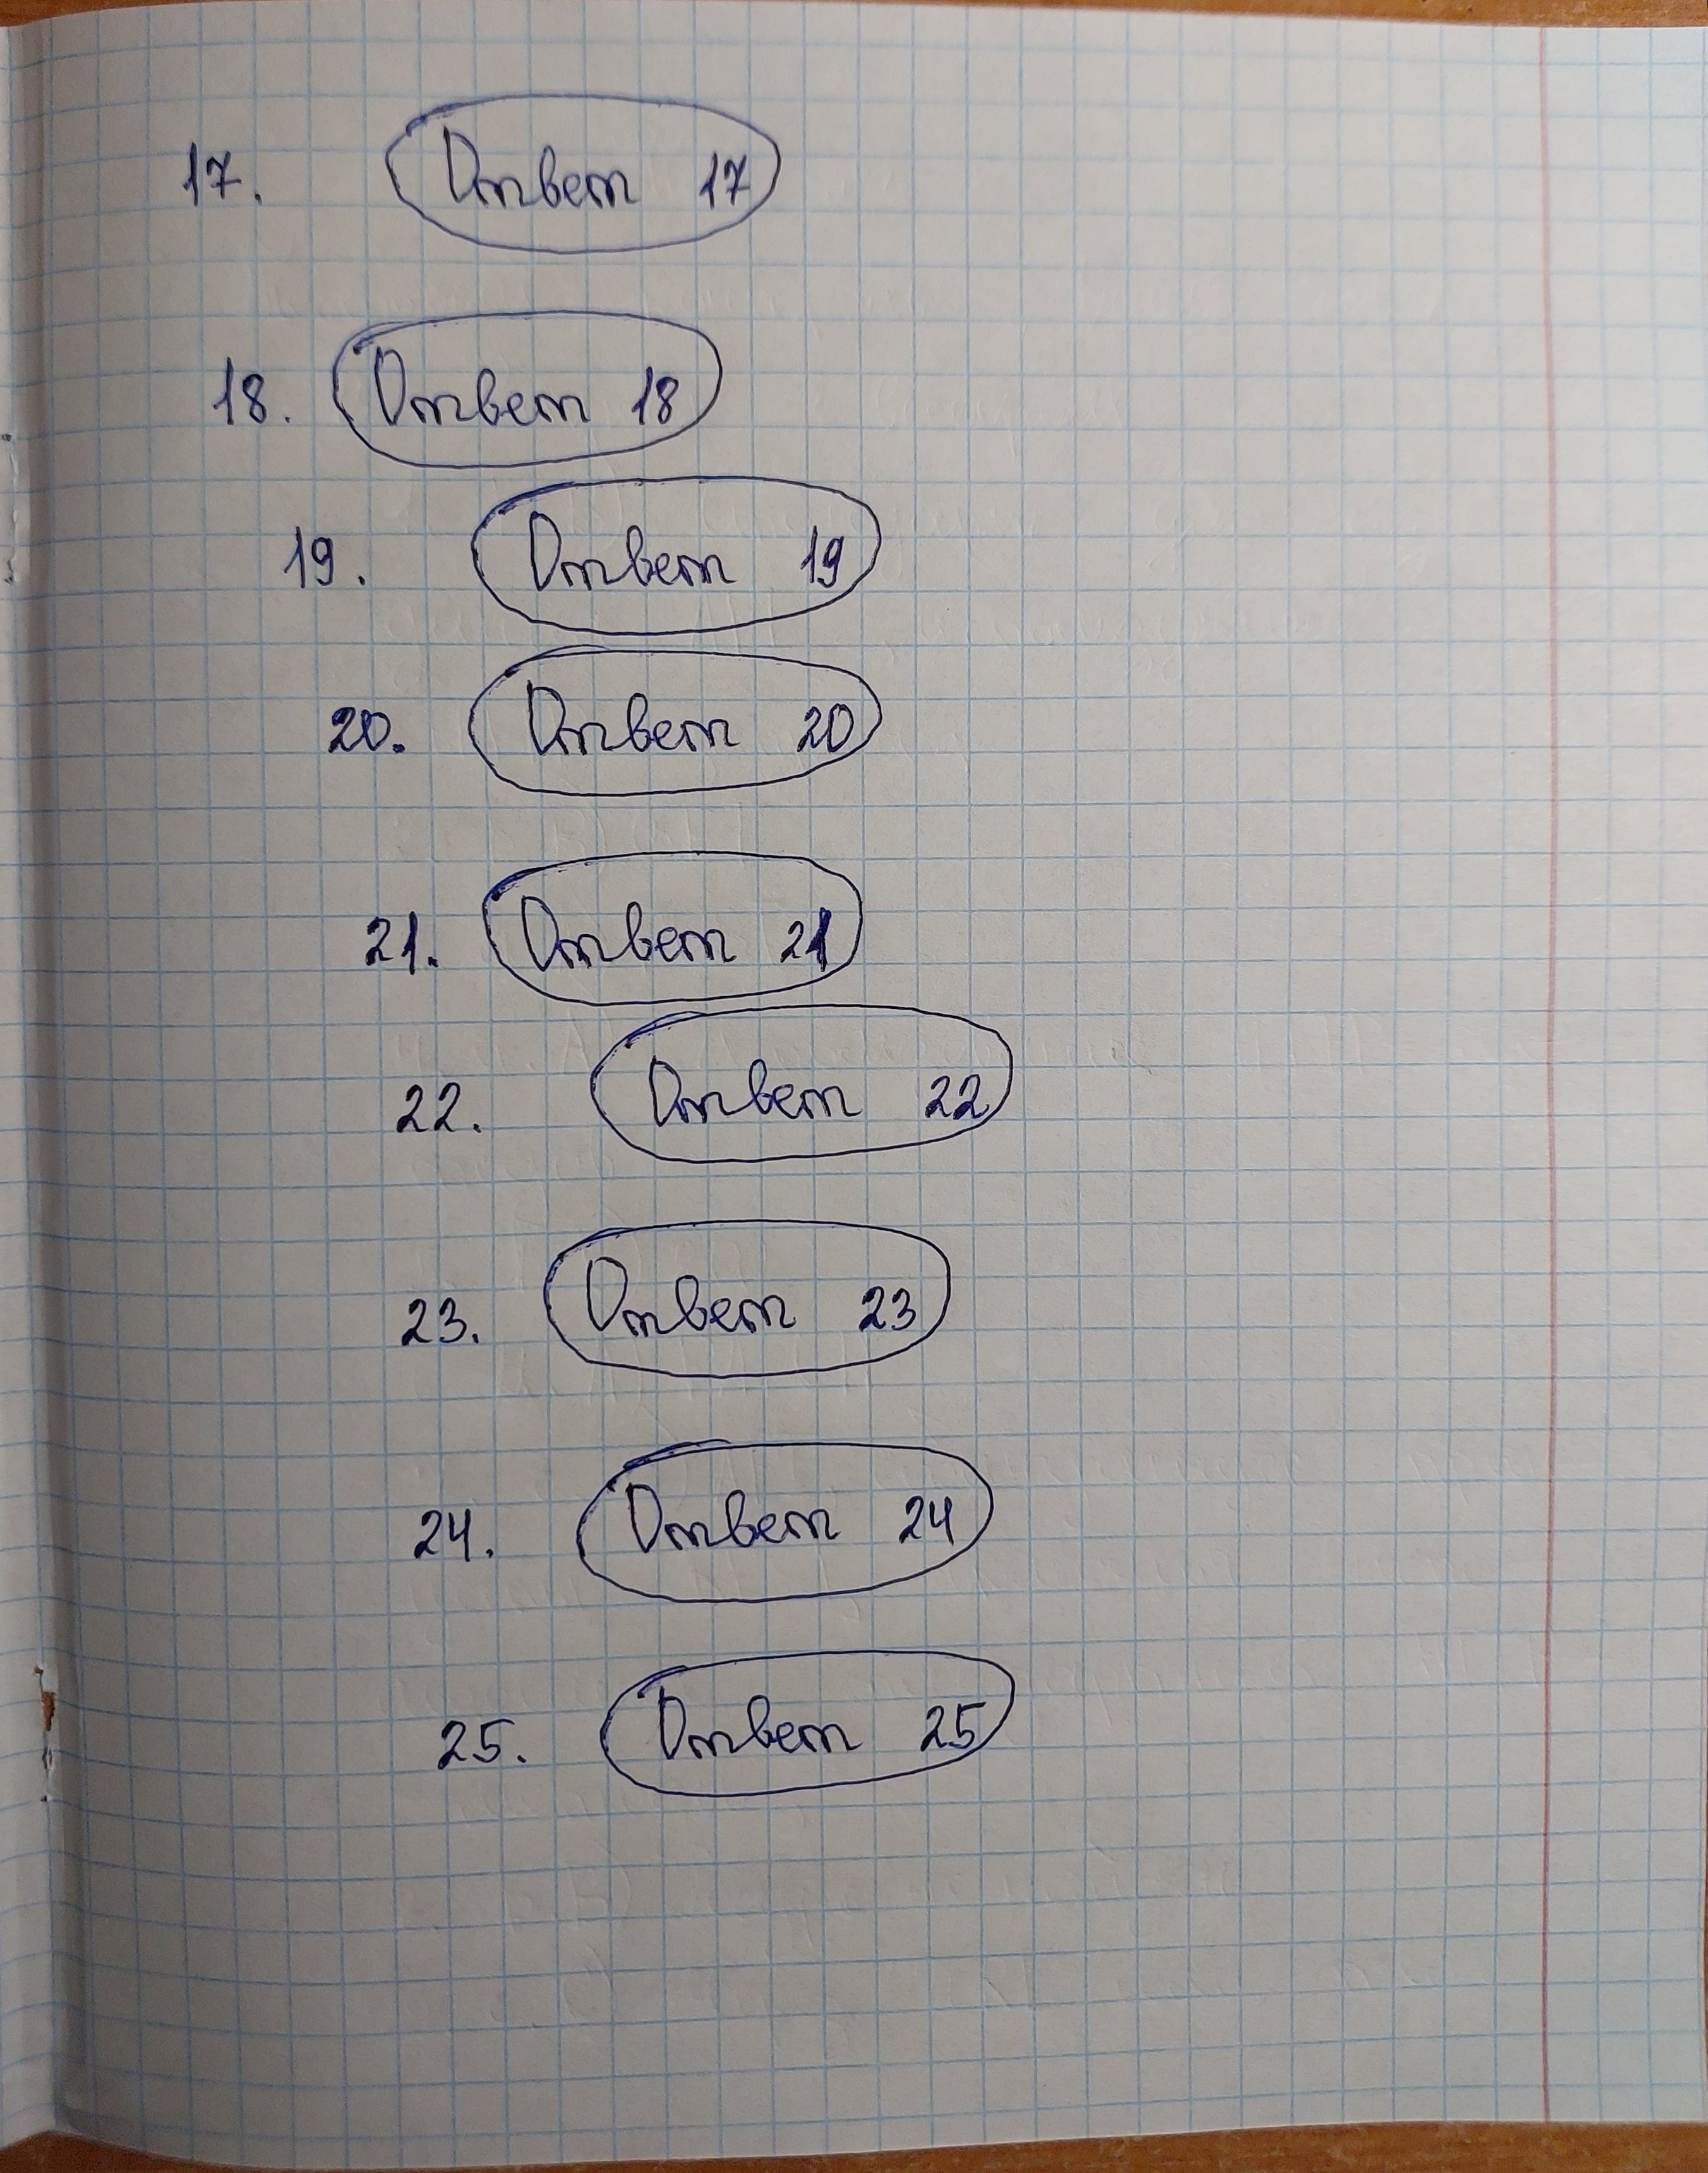 17. Ответ 17
18. Ответ 18
19. Ответ 19
20. Ответ 20
21. Ответ 21
22. Ответ 22
23. Ответ 23
24. Ответ 24
25. Ответ 25